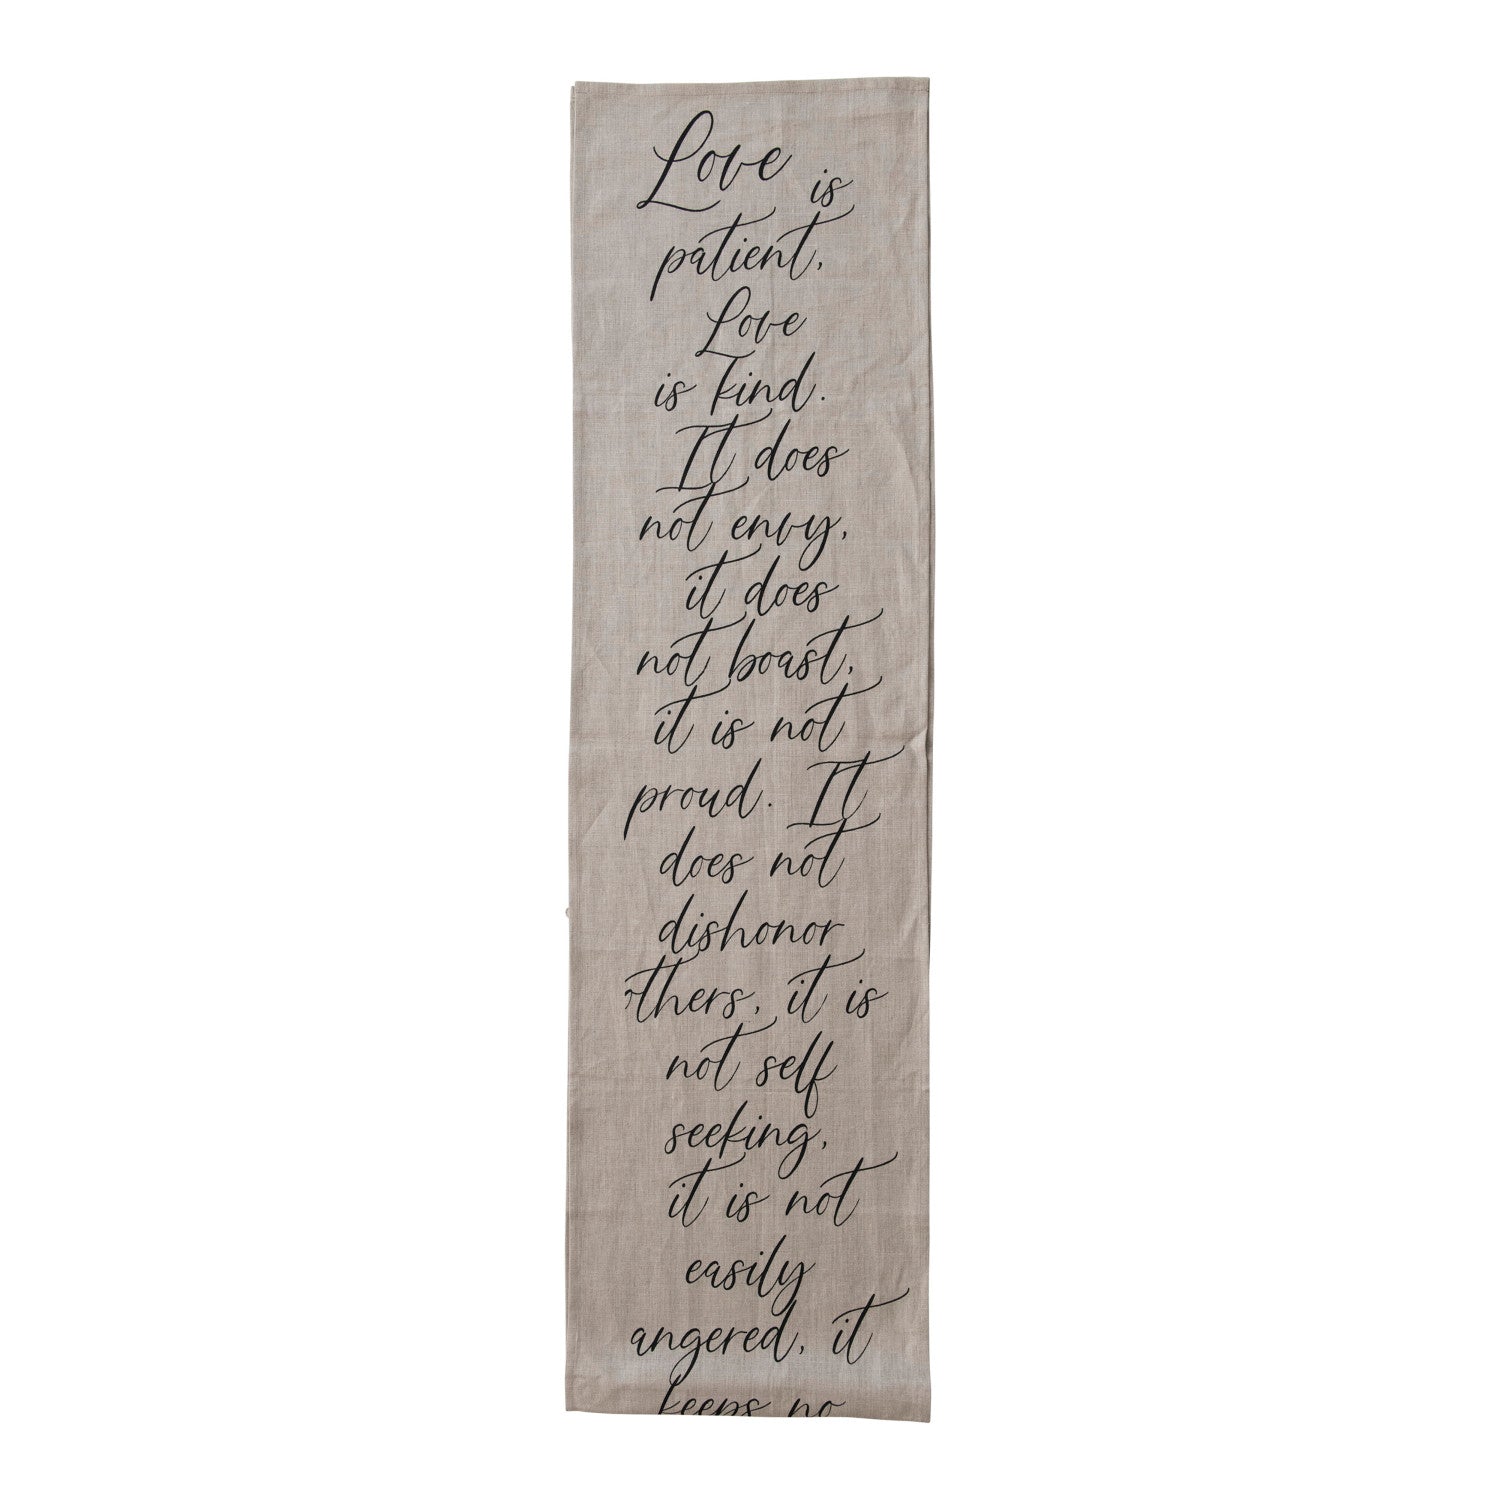 Love is
patient,
Love
is kind.
It does
not envy,
it does
not boast,
it is not
proud. It
does not
dishonor
others, it is
not self
seeking,
it is not
easily
angered, it
keeps no